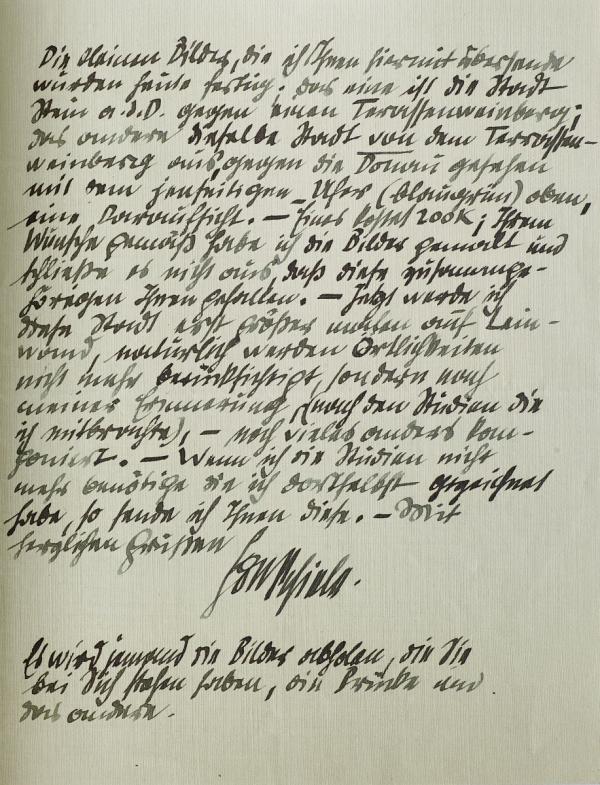 Die kleinen Bilder, die ich Ihnen hiermit übersende
wurden heute fertig. das eine ist die Stadt
Stein a.d.D. gegen einen Terassenweinberg;
das andere dieselbe Stadt von dem Terrassen-
weinberg aus, gegen die Donau gesehen
mit dem jenseitigen Ufer (blaugrün) oben,
eine Daraufsicht. – Eines kostet 200K; Ihrem
Wunsche gemäß habe ich die Bilder gemalt und
schließe es nicht aus, daß diese zusammenge-
hörigen Ihnen gefallen. – Jetzt werde ich
diese Stadt erst größer malen auf Lein-
wand, natürlich werden Örtlichkeiten
nicht mehr berücksichtigt, sondern nach
meiner Erinnerung, (nach den Studien die
ich mitbrachte), – noch vieles anders kom-
poniert. – Wenn ich die Studien nicht
mehr benötige die ich dortselbst gezeichnet
habe, so sende ich Ihnen diese. – Mit
herzlichen Grüßen
Egon Schiele.
Es wird jemand die Bilder abholen, die Sie
bei Sich stehen haben, die Brücke und
das andere.